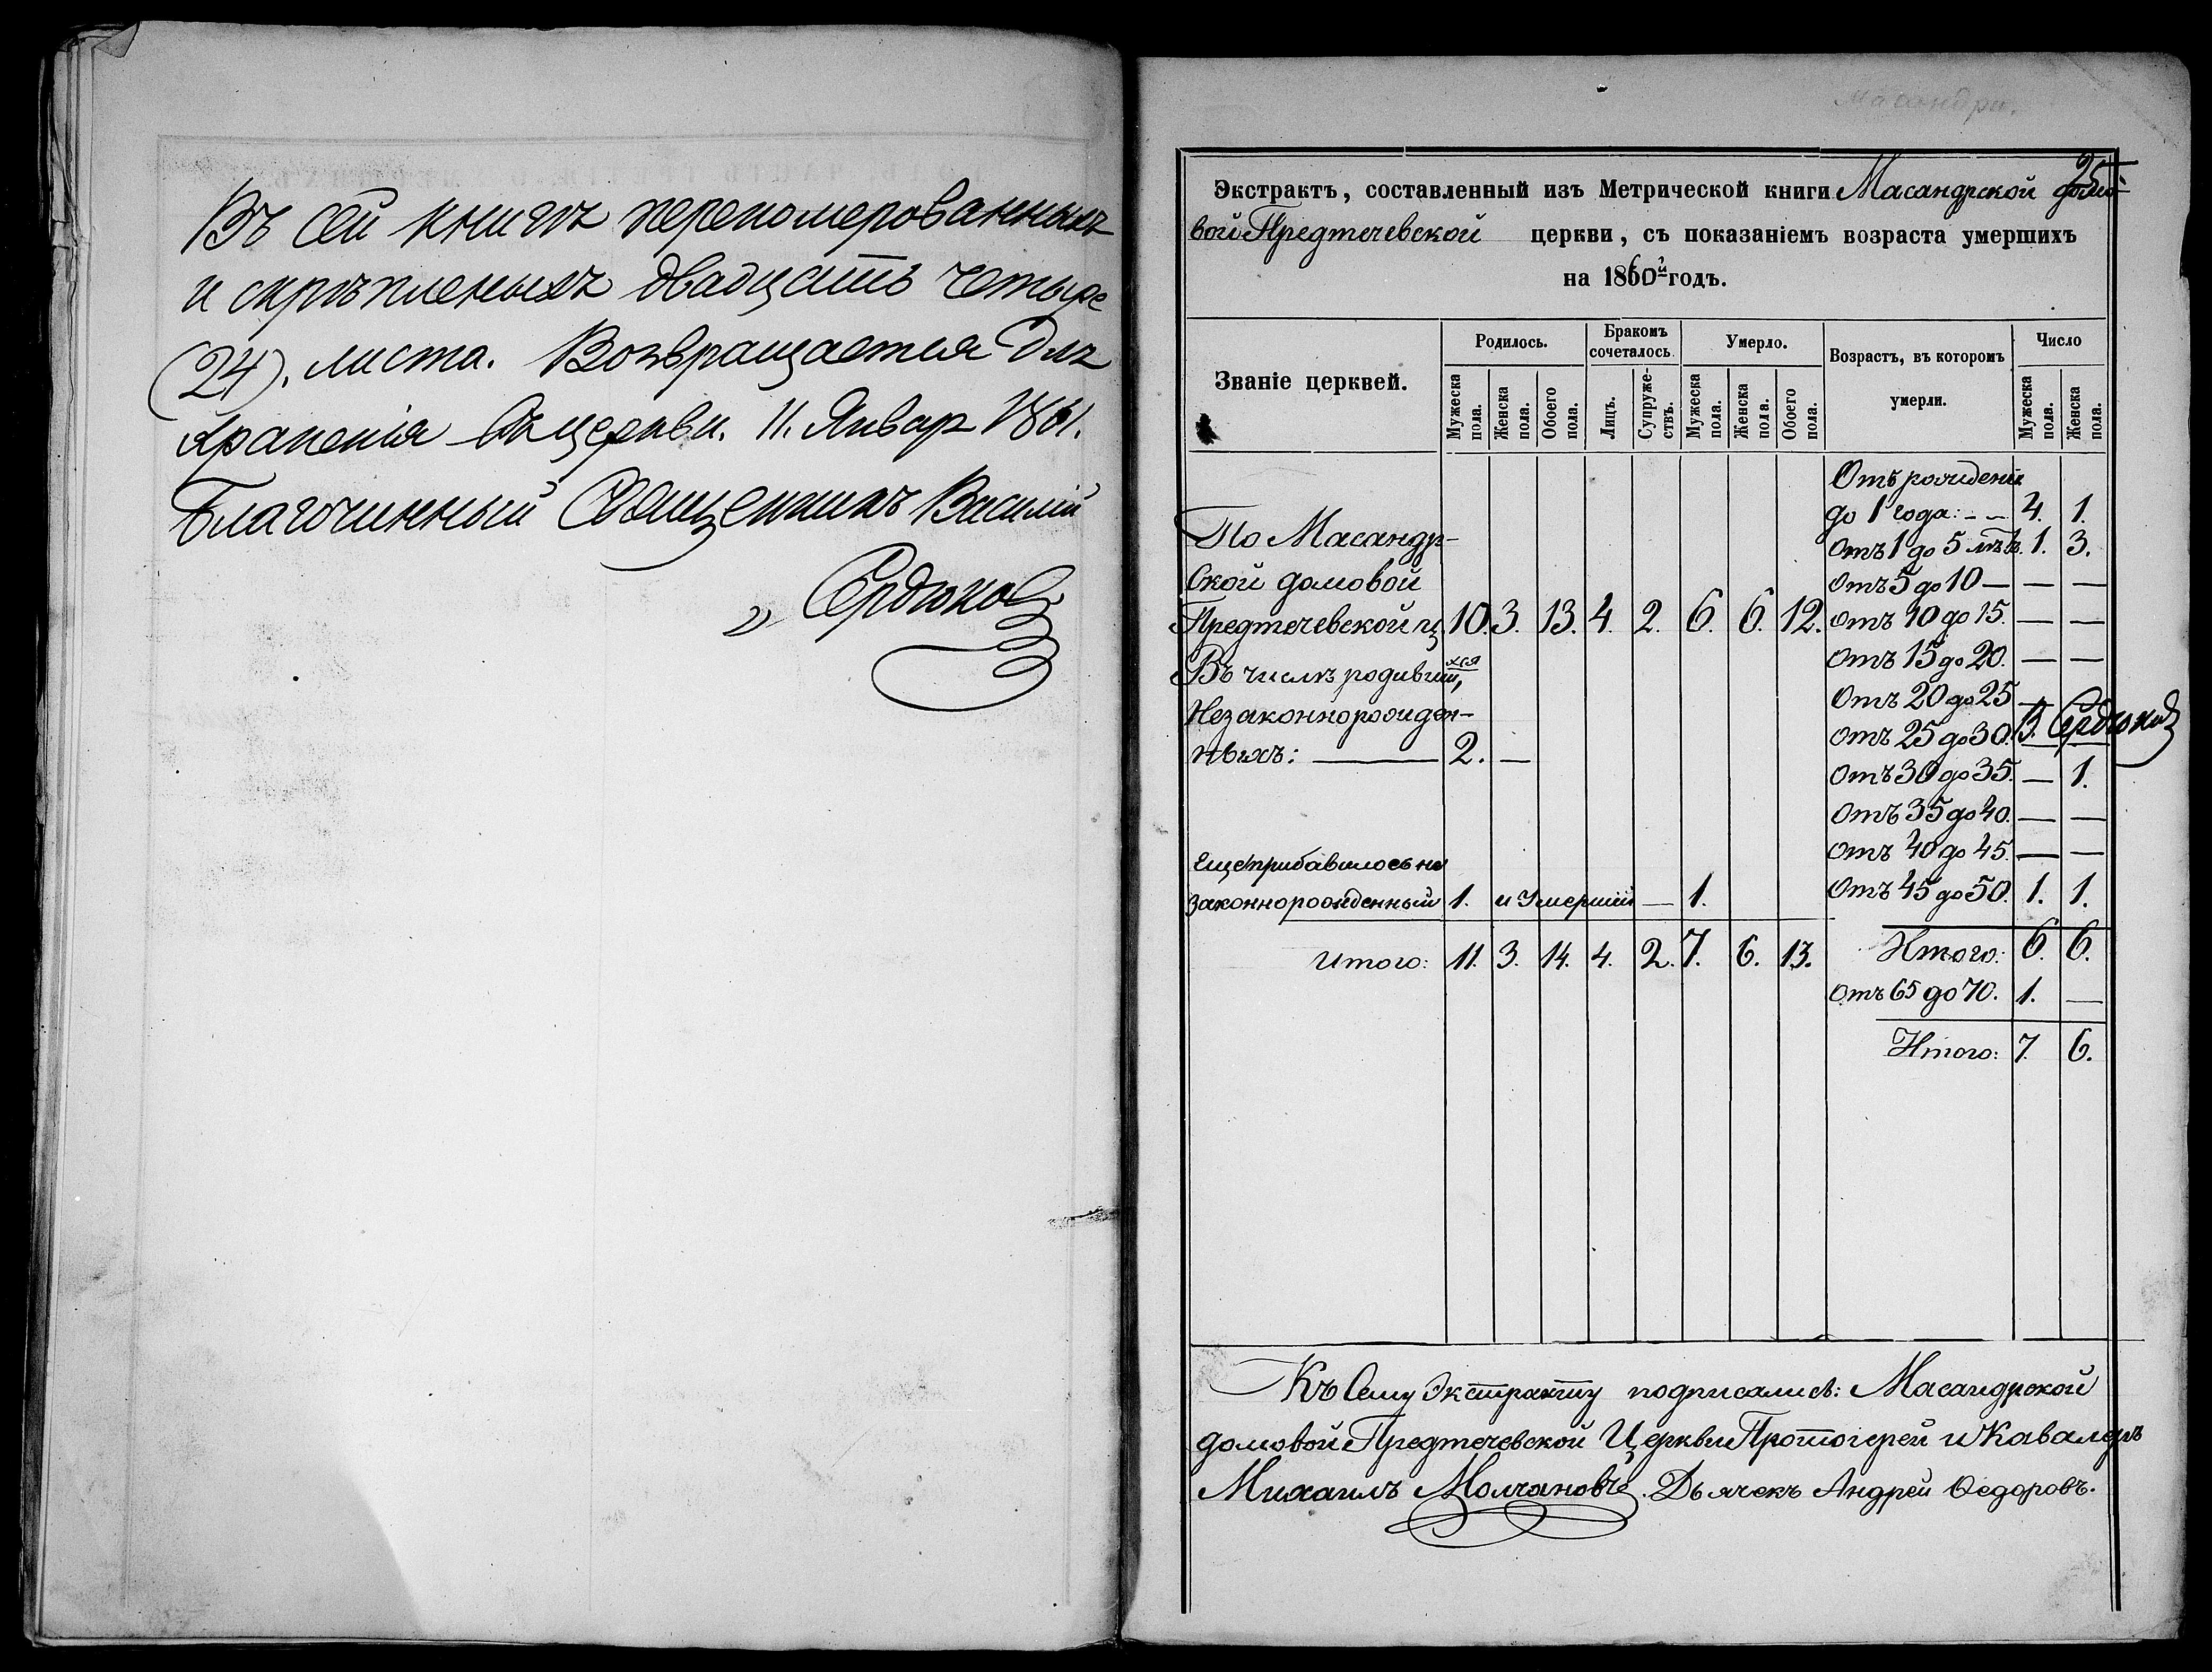 Въ сей книгѣ перепомерованныхъ
и скрѣпленыхъ двадцать четыре
(24). листа. Возвращается для
храненія въ церкви. 11. Январ 1861.
Благочинный Священникъ Василій
„ Сердюковъ
Масандри.
25
Экстрактъ, составленный изъ Метрической книги Масандрской домо-
вой Предтечевской церкви, съ показаніемъ возраста умершихъ
на 1860й годъ.
Званіе церквей.
Родилось.
Бракомъ сочеталось.
Умерло.
Возрастъ, въ которомъ умерли.
Число
Мужеска пола.
Женска пола.
Обоего пола.
Лицъ.
Супружествъ.
Мужеска пола.
Женска пола.
Обоего пола.
Мужеска пола.
Женска пола.
Отъ рожденія
до 1 года: – – 4. 1.
По Масандр-
Отъ 1 до 5 лѣтъ. 1. 3.
ской домовой
Отъ 5 до 10 — — —
Предтечевской ц. 10. 3. 13. 4. 2. 6. 6. 12. Отъ 10 до 15. — —
Отъ 15 до 20. — —
Въ числѣ родившихся,
Отъ 20 до 25 —
Незаконнорожден-
В. Сердюковъ
Отъ 25 до 30. — —
ныхъ: — 2. —
Отъ 30 до 35. — 1.
Отъ 35 до 40. — —
Отъ 40 до 45. — —
Еще прибавилось не
законнорожденный 1. и Умершій — 1. Отъ 45 до 50. 1. 1.
Итого: 11. 3. 14. 4. 2. 7. 6. 13. Итого: 6. 6.
Отъ 65 до 70. 1. —
Итого: 7. 6.
Къ Сему Экстракту подписались: Масандрской
домовой Предтечевской Церкви Протоіерей и Кавалеръ
Михаилъ Молчановъ. Дьячекъ Андрей Ѳедоровъ.